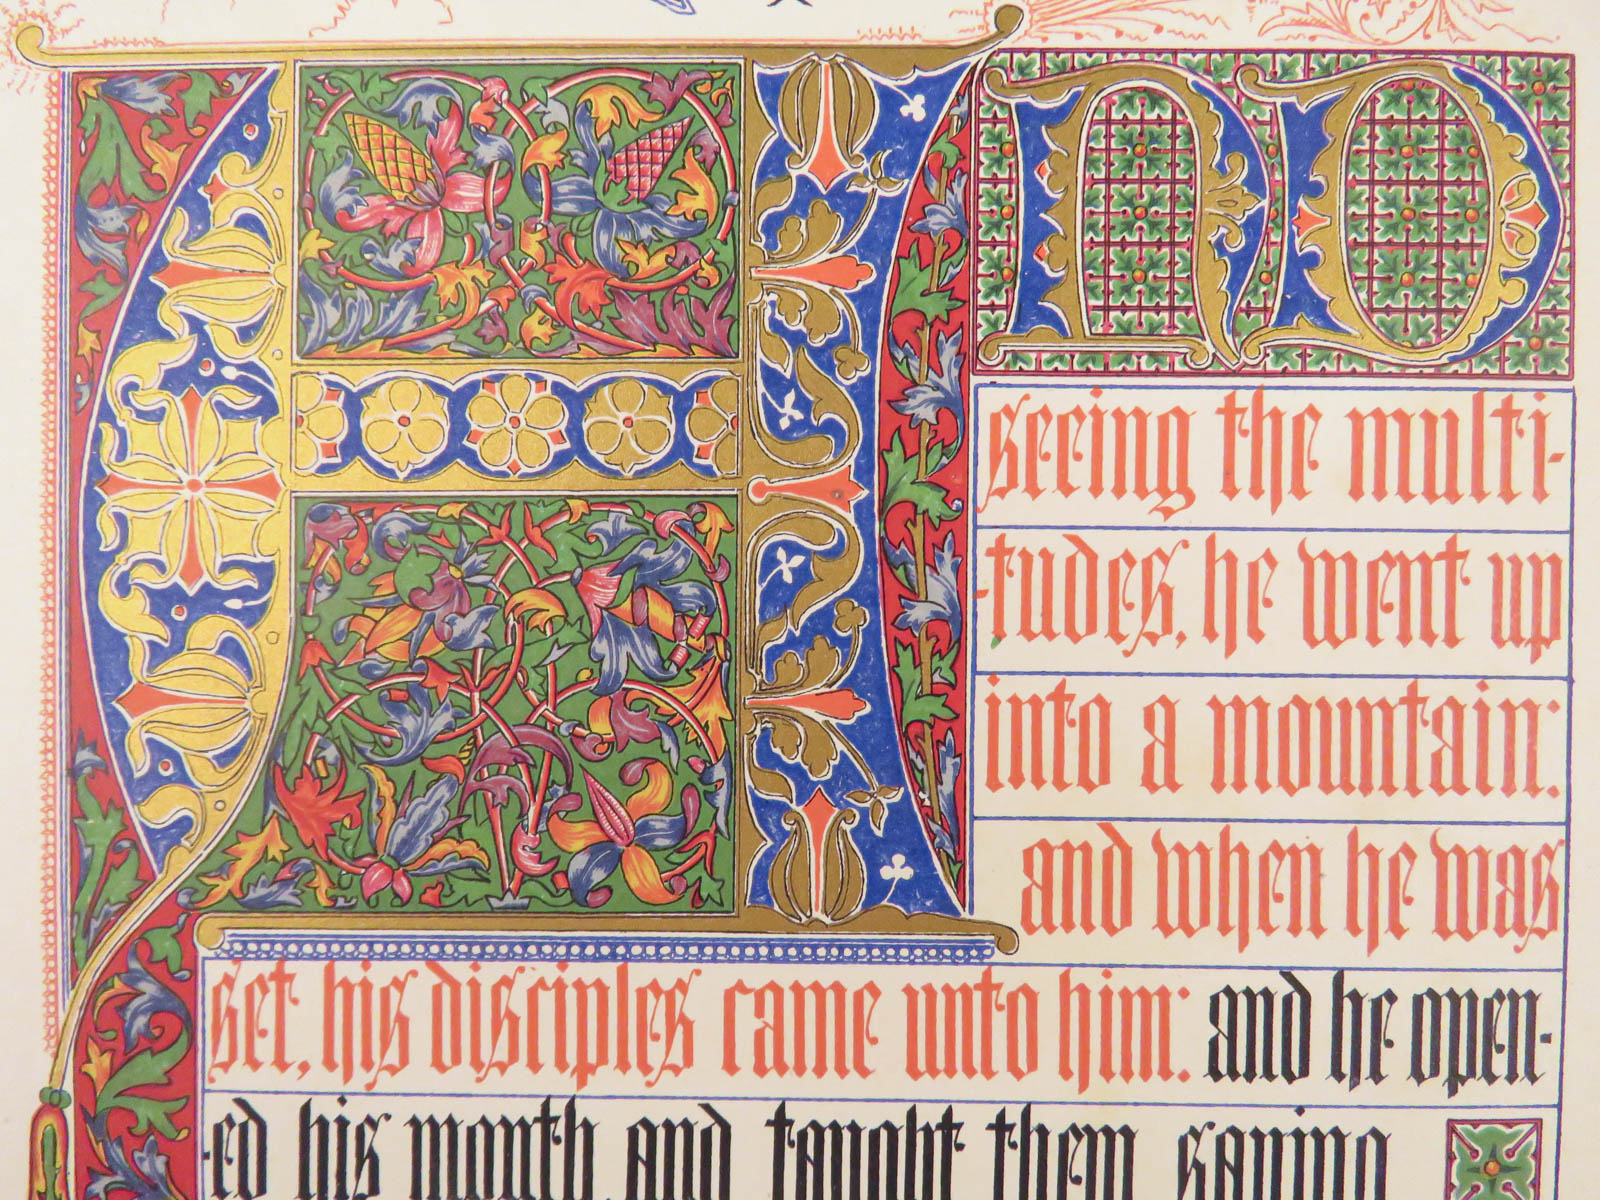 AND
seeing the multi-
-tudes, he went up
into a mountain:
and when he was
set, his disciples came unto him: and he open-
-ed his mouth, and taught them saying